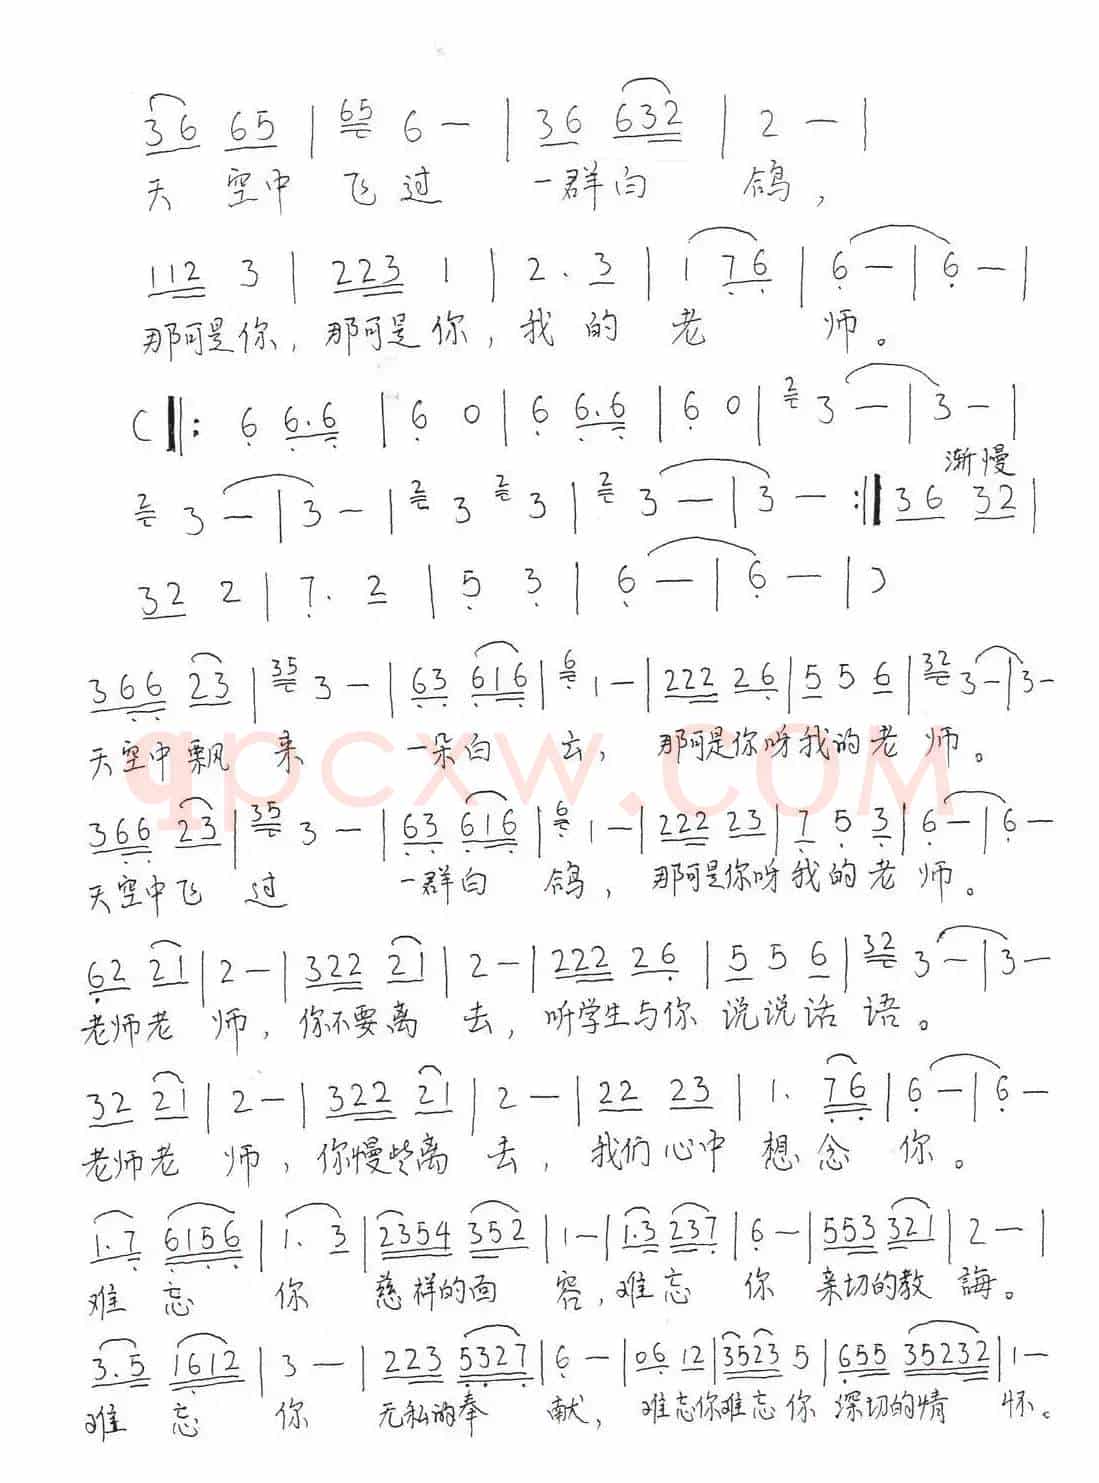 3 6 6 5 | 65 6 — | 3 6 6 3 2 | 2 — |
天 空中 飞过 一群白 鸽，
1 1 2 3 | 2 2 3 1 | 2 . 3 | 1 7 6 | 6 — | 6 — |
那可是你，那可是你，我 的 老 师。
( ‖: 6 6 . 6 | 6 0 | 6 6 . 6 | 6 0 | 2 3 — | 3 — |
渐慢
2 3 — | 3 — | 2 3 2 3 | 2 3 — | 3 — :‖ 3 6 3 2 |
3 2 2 | 7 . 2 | 5 3 | 6 — | 6 — | )
3 6 6 2 3 | 35 3 — | 6 3 6 1 6 | 6 1 — | 2 2 2 2 6 | 5 5 6 | 32 3 — | 3 —
天空中飘 来 一朵白 云，那可是你呀我的老 师。
qpcxw.COM
3 6 6 2 3 | 35 3 — | 6 3 6 1 6 | 6 1 — | 2 2 2 2 3 | 7 5 3 | 6 — | 6 —
天空中飞 过 一群白 鸽，那可是你呀我的老 师。
6 2 2 1 | 2 — | 3 2 2 2 1 | 2 — | 2 2 2 2 6 | 5 5 6 | 32 3 — | 3 —
老师老 师，你不要离 去，听学生与你 说说话 语。
3 2 2 1 | 2 — | 3 2 2 2 1 | 2 — | 2 2 2 3 | 1 . 7 6 | 6 — | 6 —
老师老 师，你慢些离 去，我们心中 想 念 你。
1 . 7 6 1 5 6 | 1 . 3 | 2 3 5 4 3 5 2 | 1 — | 1 . 3 2 3 7 | 6 — | 5 5 3 3 2 1 | 2 — |
难 忘 你 慈祥的面 容，难忘 你 亲切的教 誨。
3 . 5 1 6 1 2 | 3 — | 2 2 3 5 3 2 7 | 6 — | 0 6 1 2 | 3 5 2 3 5 | 6 5 5 3 5 2 3 2 | 1 —
难 忘 你 无私的奉 献，难忘你难忘你 深切的情 怀。